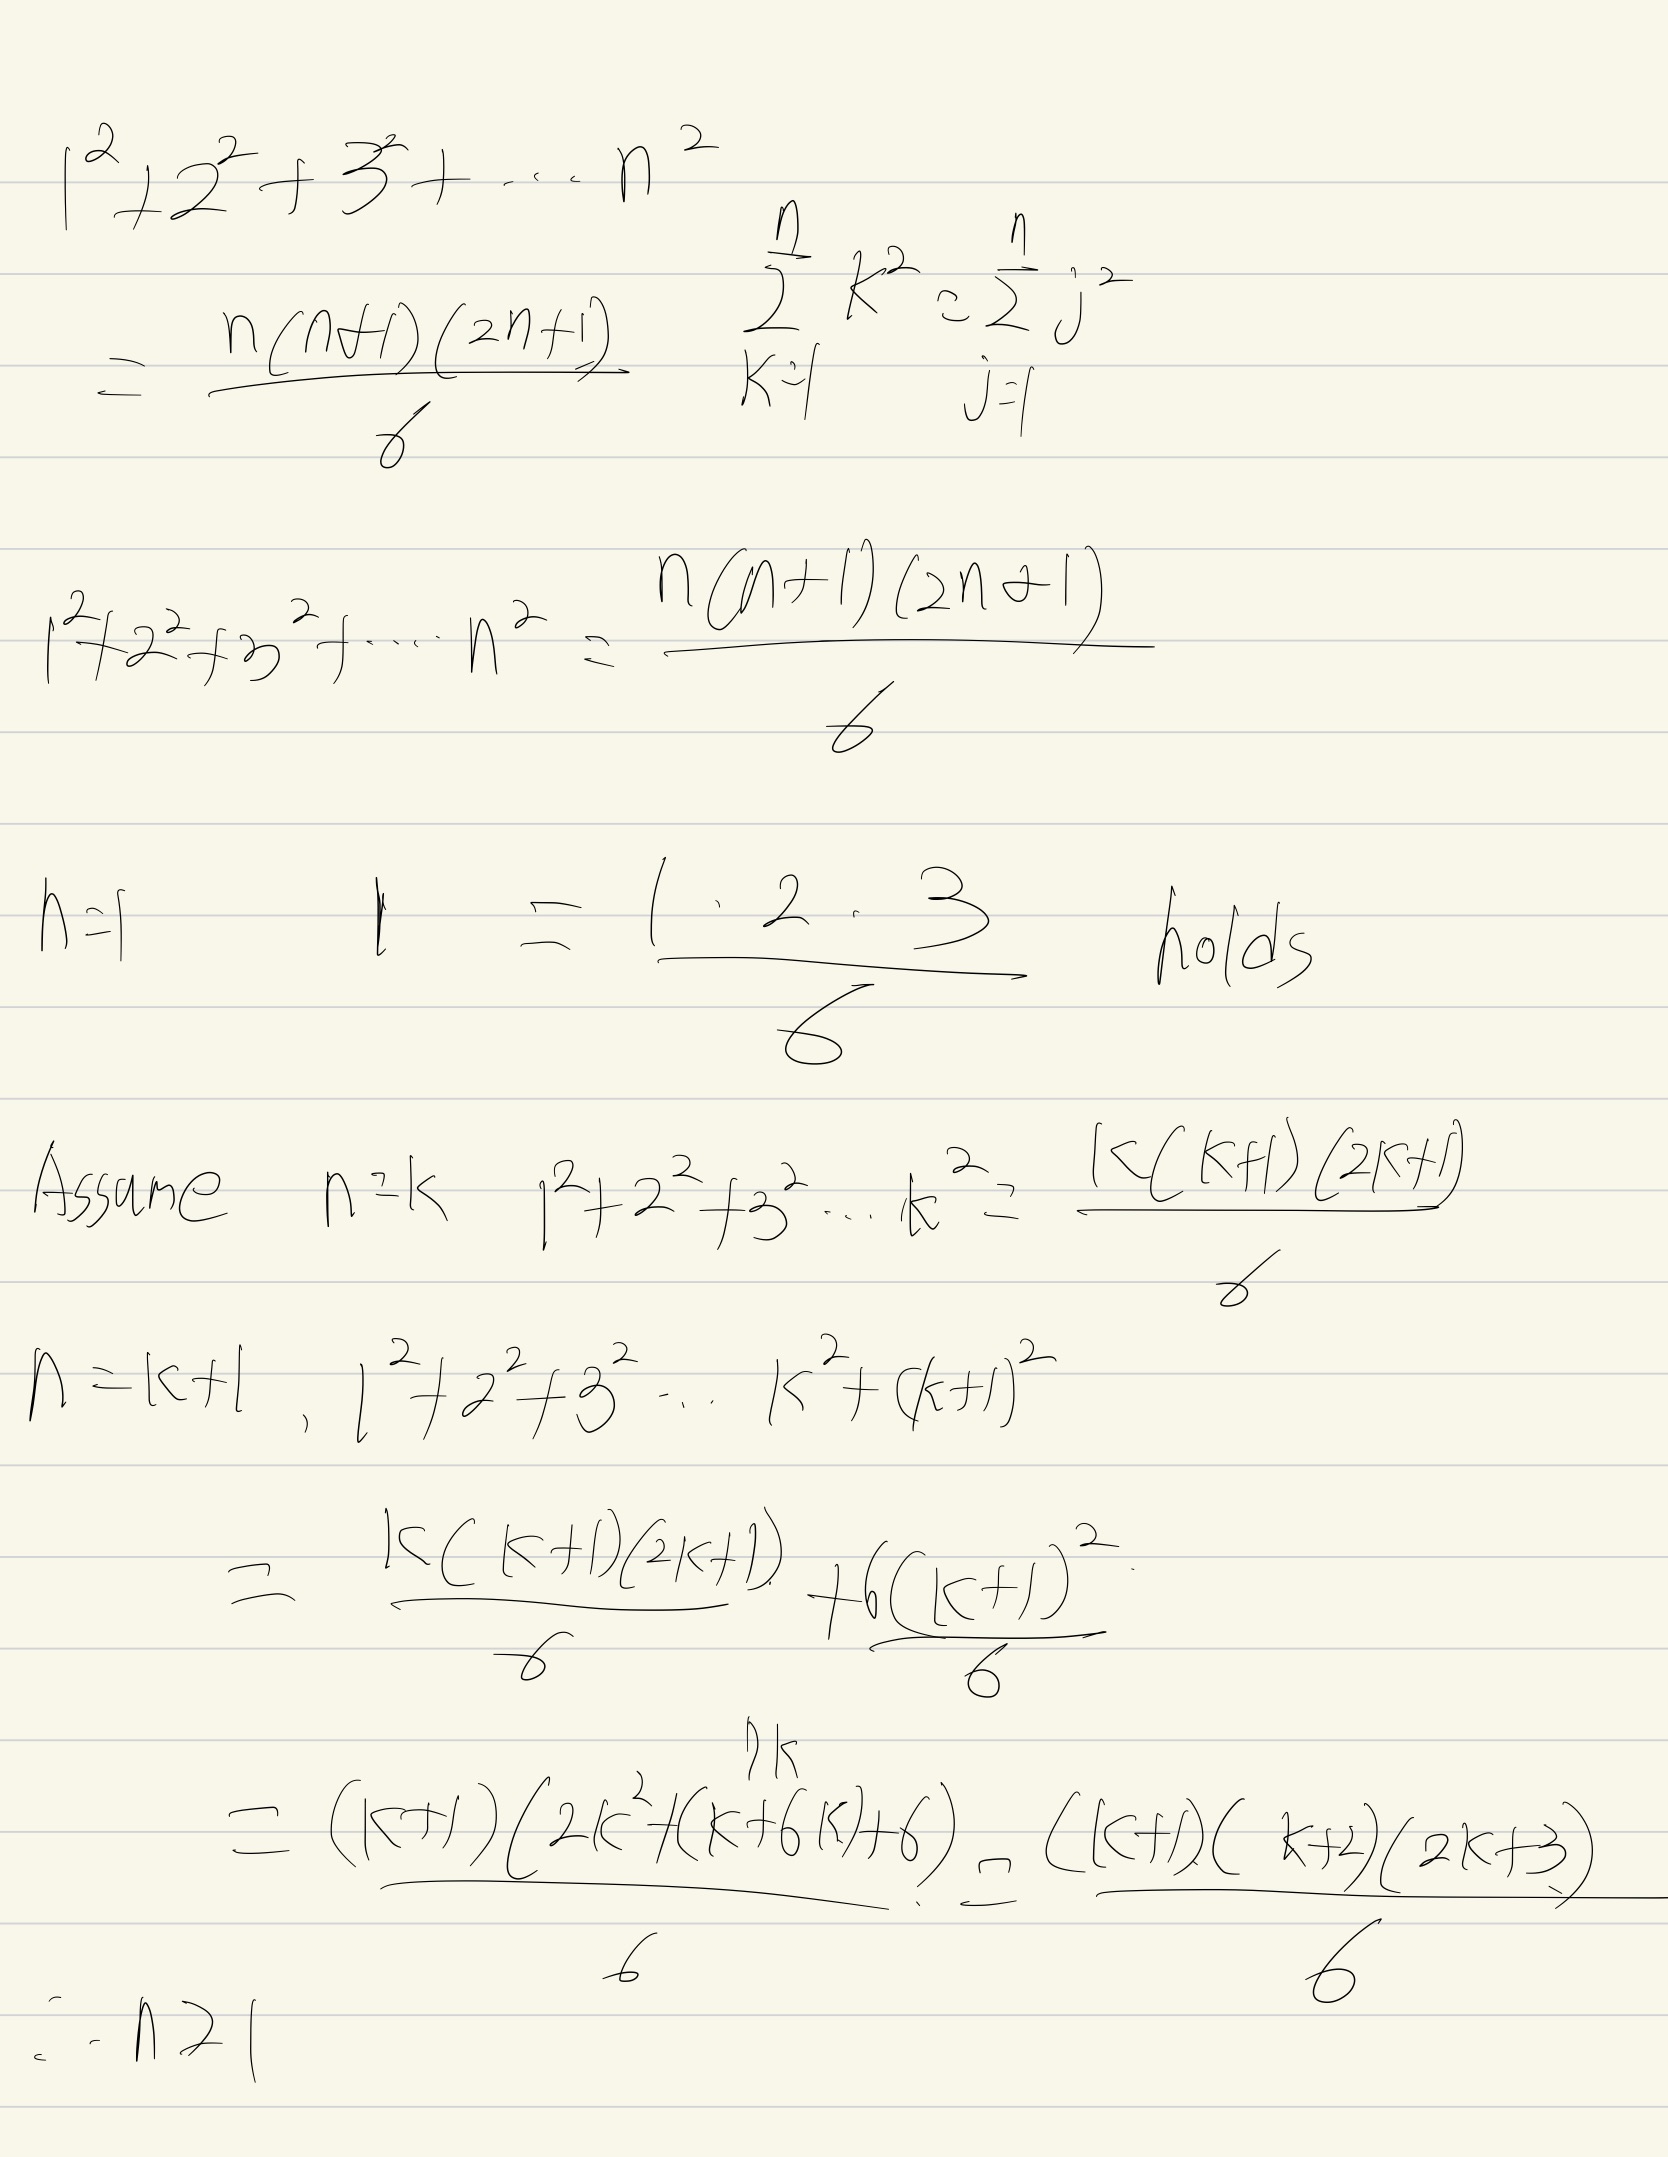 1² + 2² + 3² + ... n²
= n(n+1)(2n+1)/6   n∑k=1 k² = n∑j=1 j²
1² + 2² + 3² + ... n² = n(n+1)(2n+1)/6
n=1   1 = 1 · 2 · 3/6   holds
Assume n=k   1² + 2² + 3² ... k² = k(k+1)(2k+1)/6
n=k+1, 1² + 2² + 3² ... k² + (k+1)²
= k(k+1)(2k+1)/6 + 6(k+1)²/6
7k
= (k+1)(2k²+(k+6k)+6)/6 = (k+1)(k+2)(2k+3)/6
∴ n≥1